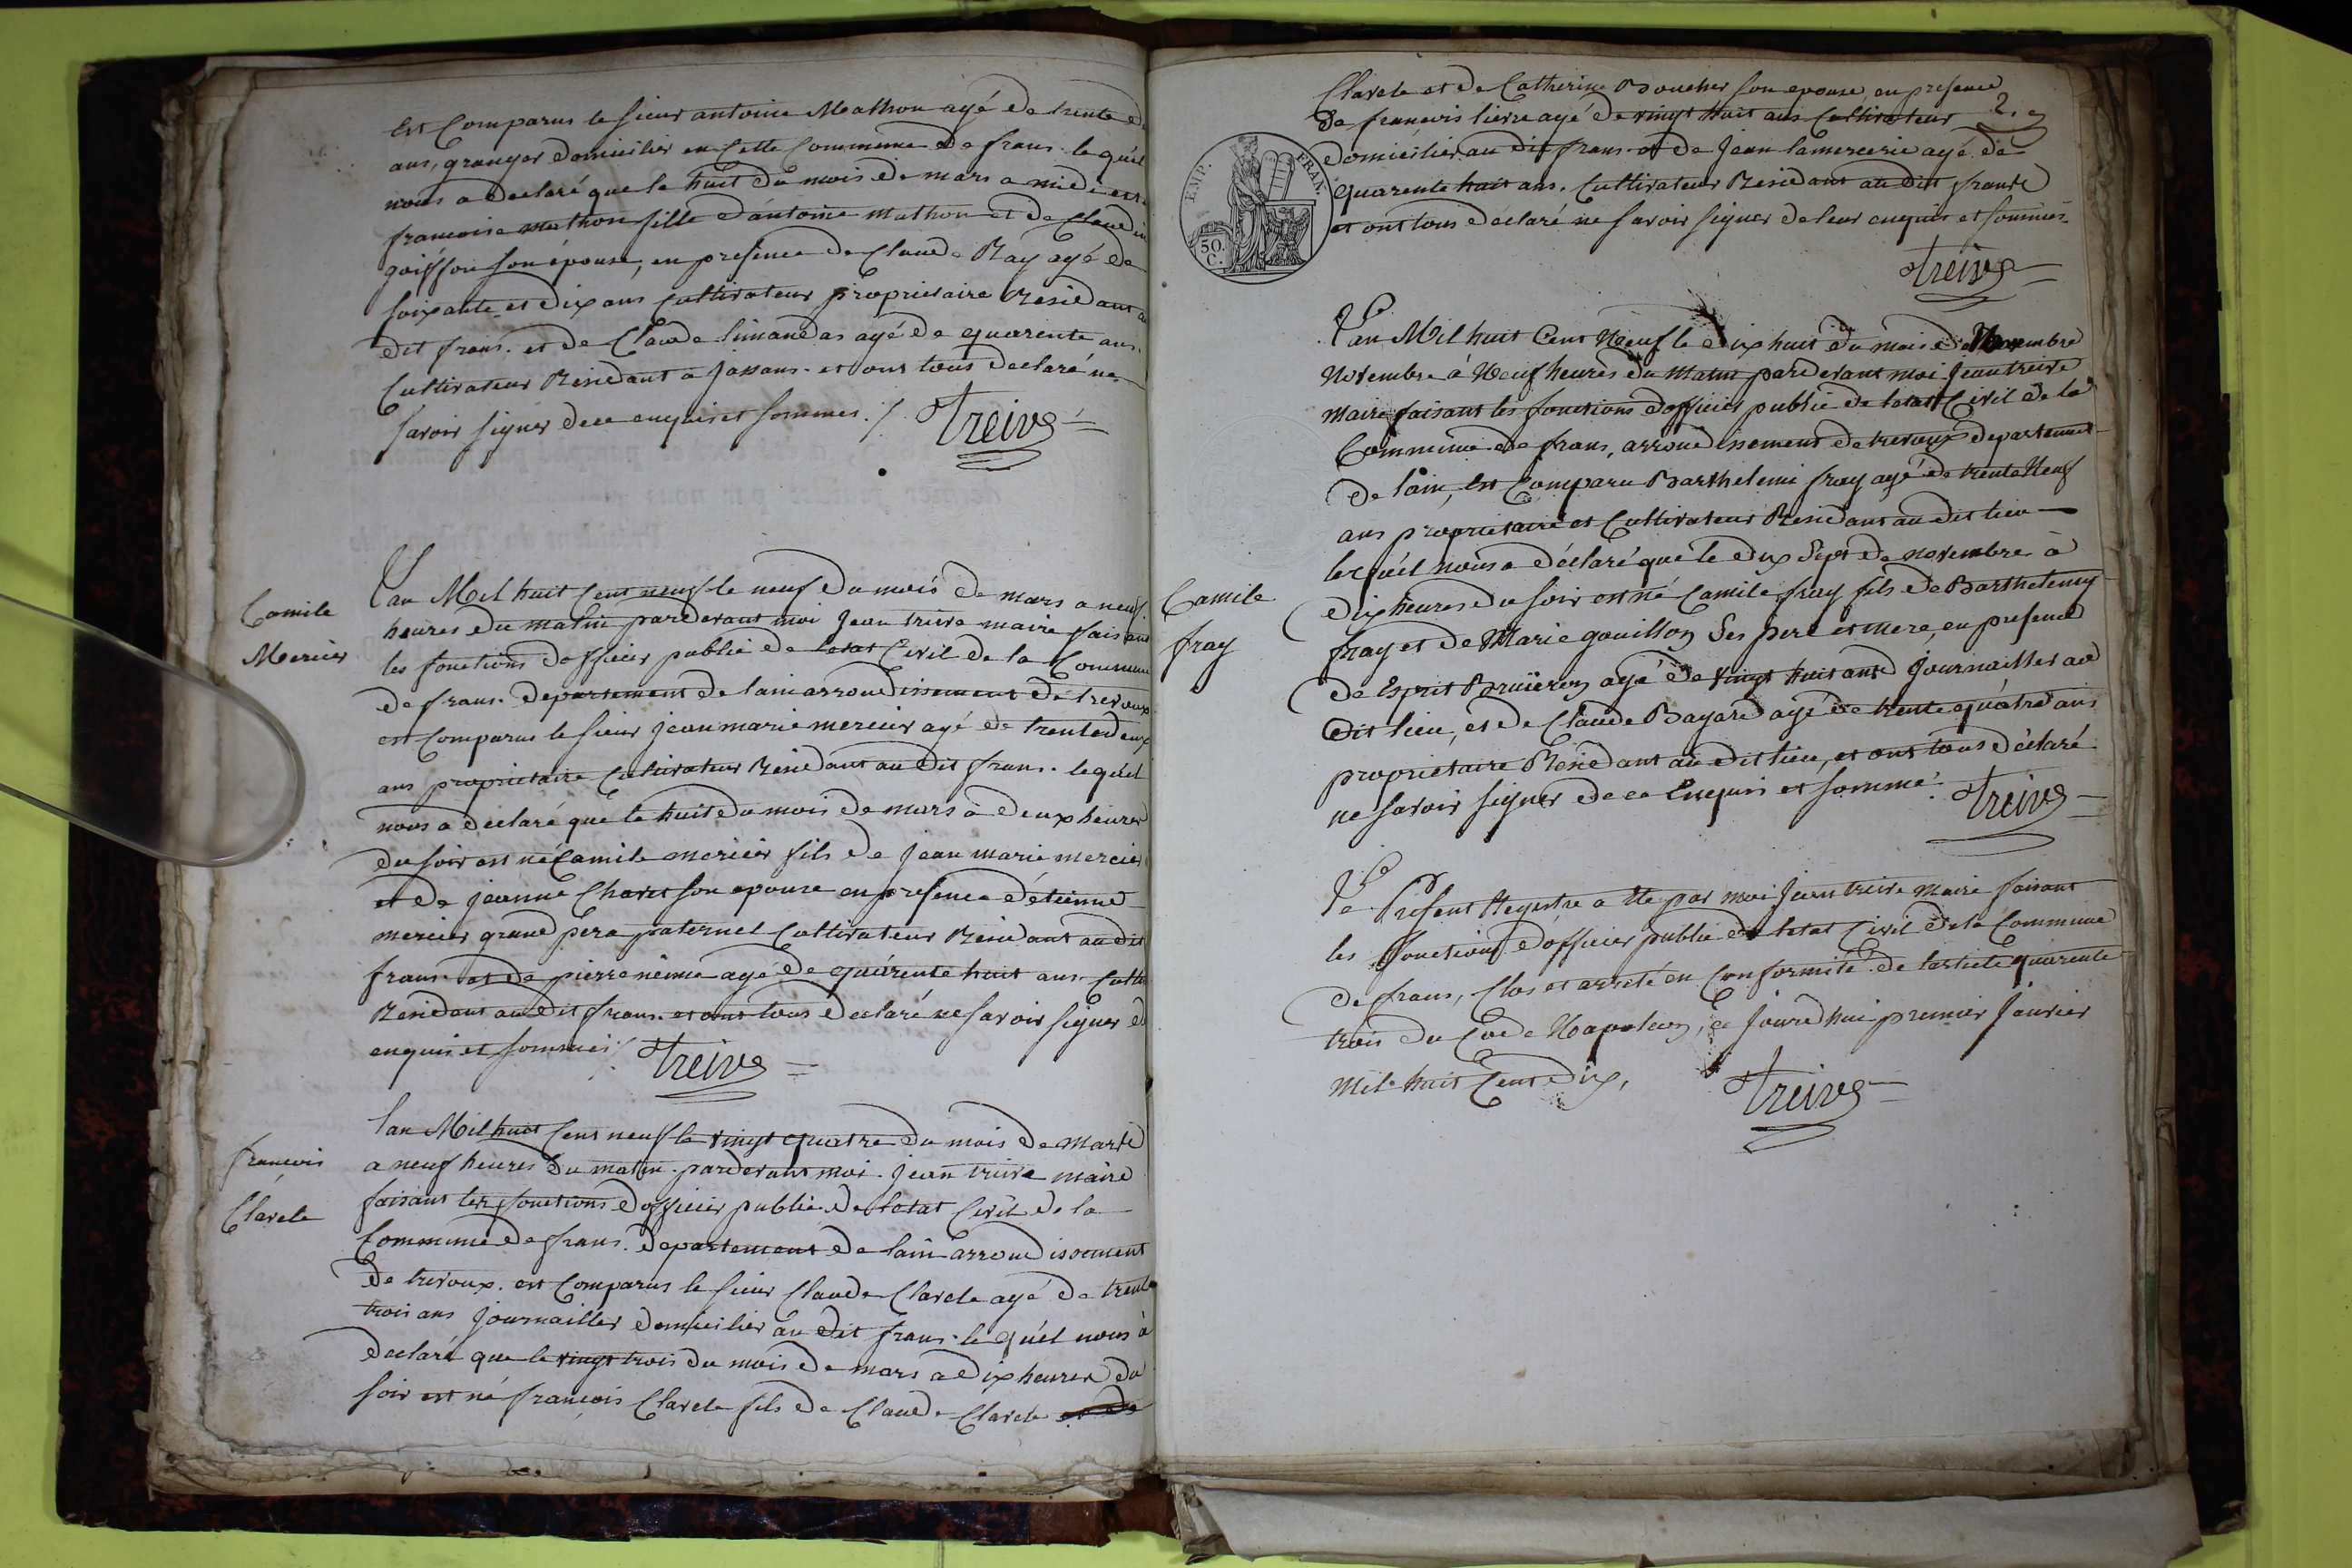 Est Comparus le sieur antoine Mathon agé de trente
ans, granger domicilier en Cette Commune de frans. le quél
nous a declaré que le huit du mois de mars a midi est
francoise mathon fille d'antoine mathon et de Claudin
goiffon son épouse, en presence de Claude Ray agé de
soixante et dix ans Cultivateur proprietaire Residant au
dit frans. et de Claude limandas agé de quarente ans.
Cultivateur Residant a jassans. et ont tous declaré ne
savoir signer de ce enquis et sommes ./. Treive
Camile
Mercier
Lan Mil huit Cent neuf le neuf du mois de mars a neuf
heures du matin pardevant moi Jean treive maire faisant
les fonctions dofficier public de letat Civil de la Commune
de frans. departement de lain arrondissement de trevoux
est Comparus le sieur jean marie mercier agé de trentedeux
ans proprietaire Cultivateur Residant au dit frans. le quél
nous a declaré que le huit du mois de mars a deux heures
du soir est né Camile mercier fils de jean marie mercier
et de jeanne Charet son epouse en presence d'étienne
mercier grand pere paternel Cultivateur Residant au dit
frans. et de pierre némie agé de quarente huit ans. Culti
Residant au dit frans. et ont tous declaré ne savoir signer de
enquis et sommés ./. Treive
francois
Clavele
lan Mil huit Cent neuf le vingt quatre du mois de mars
a neuf heures du matin. pardevant moi. Jean treive maire
faisant les fonctions dofficier public de letat Civil de la
Commune de frans. departement de lain arrondissement
de trevoux. est Comparus le sieur Claude Clavele agé de trente
trois ans journailler domicilier au dit frans. le quél nous a
declaré que le vingt trois du mois de mars a dix heures du
soir est né francois Clavele fils de Claude Clavele et de
Clavele et de Catherine Boucher son epouse, en presence
de francois lievre agé de vingt huit ans Cultivateur
domicilier au dit frans. et de Jean lamercerie agé de
quarente huit ans. Cultivateur Residant au dit frans
et ont tous declaré ne savoir signer de leur enquis et sommés.
Treive
EMP. FRAN.
50.
C.
Lan Mil huit Cent Neuf le dix huit du mois de Novembre
Novembre à Neuf heures du matin pardevant moi Jean treive
maire faisant les fonctions dofficier public de letat Civil de la
Commune de frans, arrondissement de trevoux departement
de lain, Est Comparu Barthelemi fray agé de trente Neuf
ans proprietaire et Cultivateur Residant au dit lieu
lequél nous a déclaré que le dix Sept de novembre à
dix heures du soir est né Camile fray fils de Barthelemy
fray et de Marie gouillon Ses pere et mere, en presence
de Esprit Bruieren agé de vingt huit ans journailler au
dit lieu, et de Claude Bayard agé de trente quatre ans
proprietaire Residant au dit lieu, et ont tous déclaré
ne savoir signer de ce Enquis et sommé. Treive
Camile
fray
Le Présent Registre a ete par moi Jean treive Maire faisant
les fonctions dofficier public de letat Civil de la Commune
de frans, Clos et arreté en Conformité de larticle quarente
trois du Code Napoleon, ce jourd'hui premier Janvier
Mil huit Cent Dix, Treive